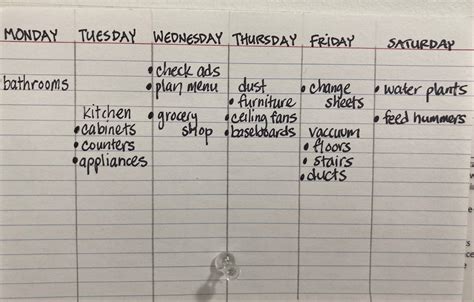 MONDAY TUESDAY WEDNESDAY THURSDAY FRIDAY SATURDAY
bathrooms
kitchen
• cabinets
• counters
• appliances
• check ads
• plan menu
• grocery
shop
dust
• furniture
• ceiling fans
• baseboards
• change
sheets
vacuum
• floors
• stairs
• ducts
• water plants
• feed hummers